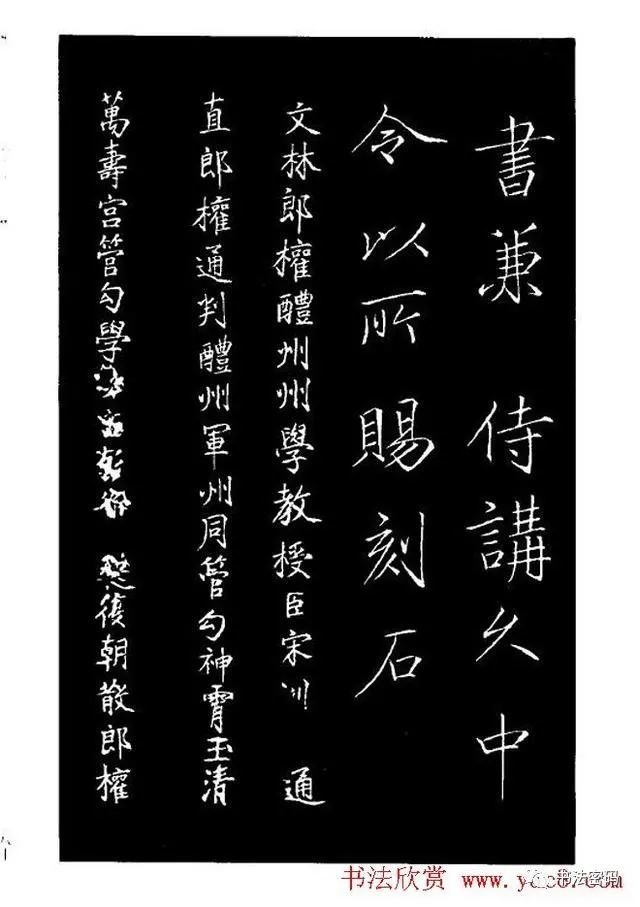 書兼 侍講久中
令以所賜刻石
文林郎權醴州州學教授臣宋 通
直郎權通判醴州軍州同管勾神霄玉清
萬壽宮管勾學 復朝散郎權
书法欣赏 www.yac8.com
书法密码